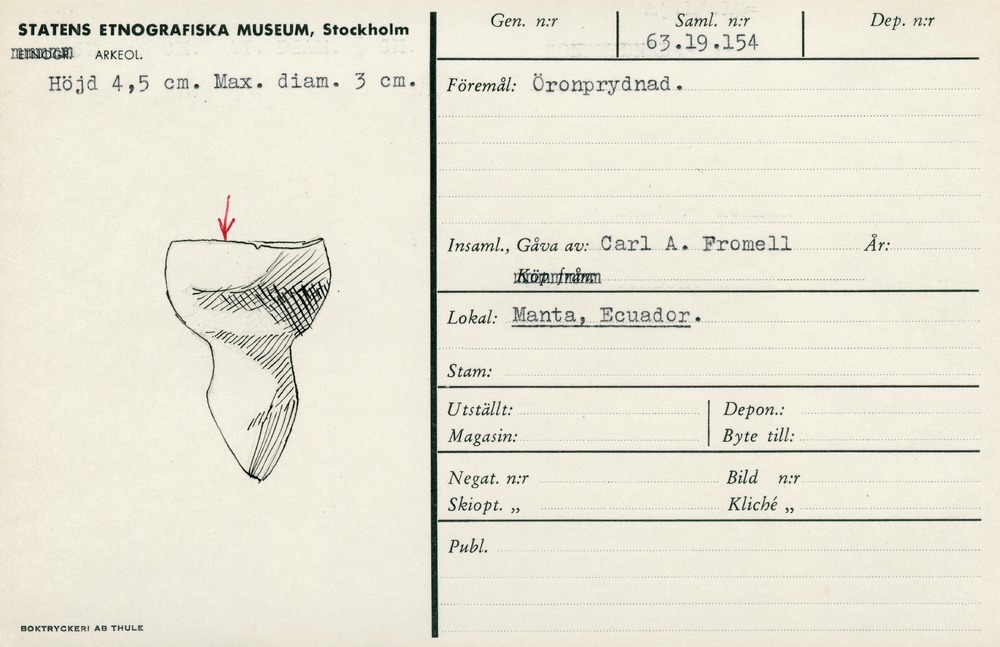 STATENS ETNOGRAFISKA MUSEUM, Stockholm
ETNOGR. ARKEOL.
Höjd 4,5 cm. Max. diam. 3 cm.
BOKTRYCKERI AB THULE
Gen. n:r Saml. n:r Dep. n:r
63.19.154
Föremål: Öronprydnad.
Insaml., Gåva av: Carl A. Fromell År:
Köp från:
Lokal: Manta, Ecuador.
Stam:
Utställt: Depon.:
Magasin: Byte till:
Negat. n:r Bild n:r
Skiopt. „ Kliché „
Publ.